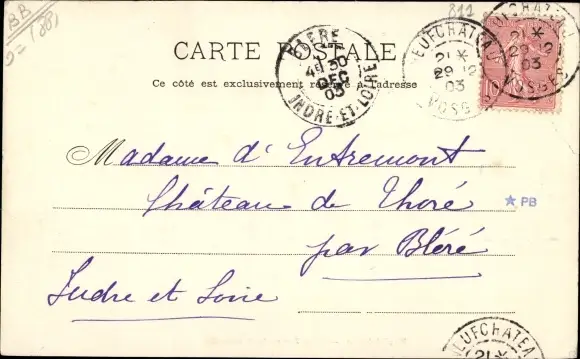 BB
(88)
812
CARTE POSTALE
Ce côté est exclusivement réservé à l'adresse
BLÉRÉ
4E 30
DEC
03
INDRE-ET-LOIRE
NEUFCHATEAU
21 *
29 -12
03
VOSGES
NEUFCHATEAU
21 *
29 -12
03
VOSGES
10
Madame d'Entremont
Château de Thoré
★ PB
par Bléré
Indre et Loire
NEUFCHATEAU
21 *